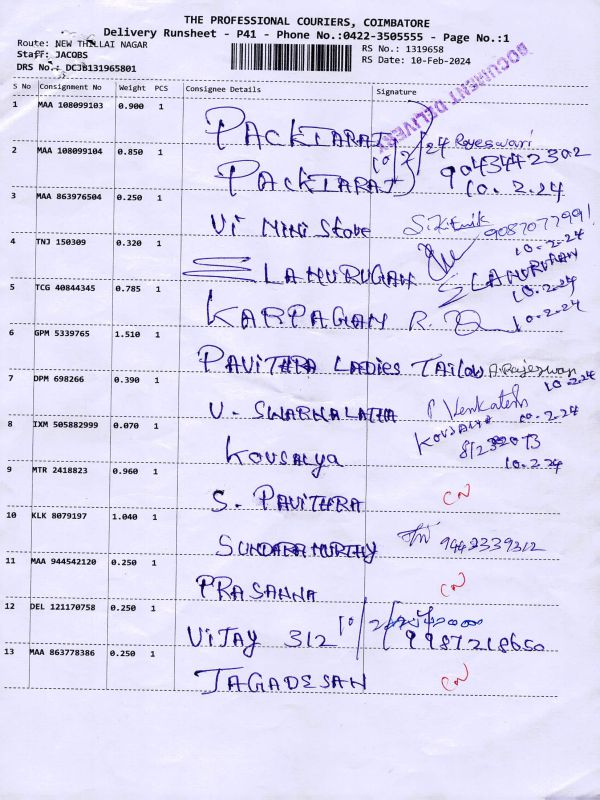 THE PROFESSIONAL COURIERS, COIMBATORE
Delivery Runsheet - P41 - Phone No.:0422-3505555 - Page No.:1
Route: NEW THILLAI NAGAR
RS No.: 1319658
Staff: JACOBS
RS Date: 10-Feb-2024
DRS No.: DCJB131965801
DOCUMENT DELIVERY
S No Consignment No Weight PCS Consignee Details Signature
1 MAA 108099103 0.900 1 PACKIARAJ
10/2/24 Rajeswari
9043442302
2 MAA 108099104 0.850 1 PACKIARAJ 10.2.24
3 MAA 863976504 0.250 1 Vi MINI Store 9087077991
10-2-24
4 TNJ 150309 0.320 1 ELAMURUGAN ELAMURUGAN
10.2.24
5 TCG 40844345 0.785 1 KARPAGAN R.
10.2.24
6 GPM 5339765 1.510 1 PAVITHRA LADIES TAILOR A.Rajeswari
10.2.24
7 DPM 698266 0.390 1 V. SWARNALATHA P Venkatesh
10.2.24
8 IXM 505882999 0.070 1 Kousalya
10.2.24
9 MTR 2418823 0.960 1 S. PAVITHRA CN
10 KLK 8079197 1.040 1 SUNDARAMURTHY 9442339312
11 MAA 944542120 0.250 1 PRASANNA CN
12 DEL 121170758 0.250 1 VIJAY 312 9987218650
13 MAA 863778386 0.250 1 JAGADESAN CN